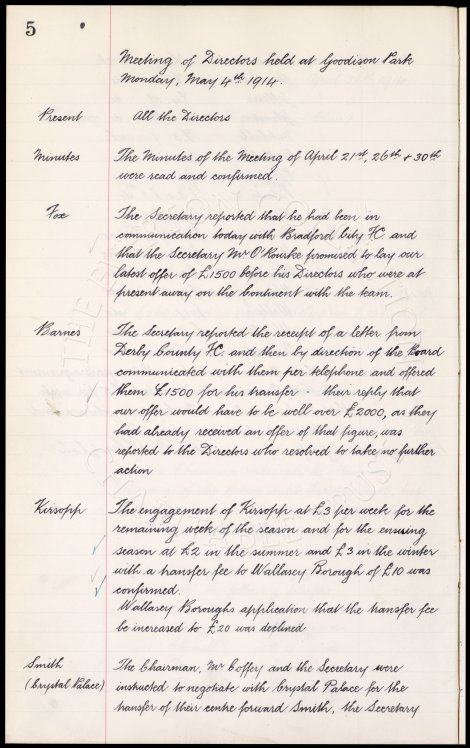 5
Meeting of Directors held at Goodison Park
Monday, May 4th 1914.
Present All the Directors
Minutes The Minutes of the Meeting of April 21st, 26th & 30th
were read and confirmed.
Fox The Secretary reported that he had been in
communication today with Bradford City FC and
that the Secretary Mr O'Rourke promised to lay our
latest offer of £1500 before his Directors who were at
present away on the Continent with the team.
Barnes The Secretary reported the receipt of a letter from
Derby County FC. and then by direction of the Board
communicated with them per telephone and offered
them £1500 for his transfer - their reply that
our offer would have to be well over £2000, as they
had already received an offer of that figure, was
reported to the Directors who resolved to take no further
action
Kirsopp The engagement of Kirsopp at £3 per week for the
remaining week of the season and for the ensuing
season at £2 in the summer and £3 in the winter
with a transfer fee to Wallasey Borough of £10 was
confirmed.
Wallasey Boroughs application that the transfer fee
be increased to £20 was declined
Smith The Chairman, Mr Coffey and the Secretary were
(Crystal Palace) instructed to negotiate with Crystal Palace for the
transfer of their centre forward Smith, the Secretary